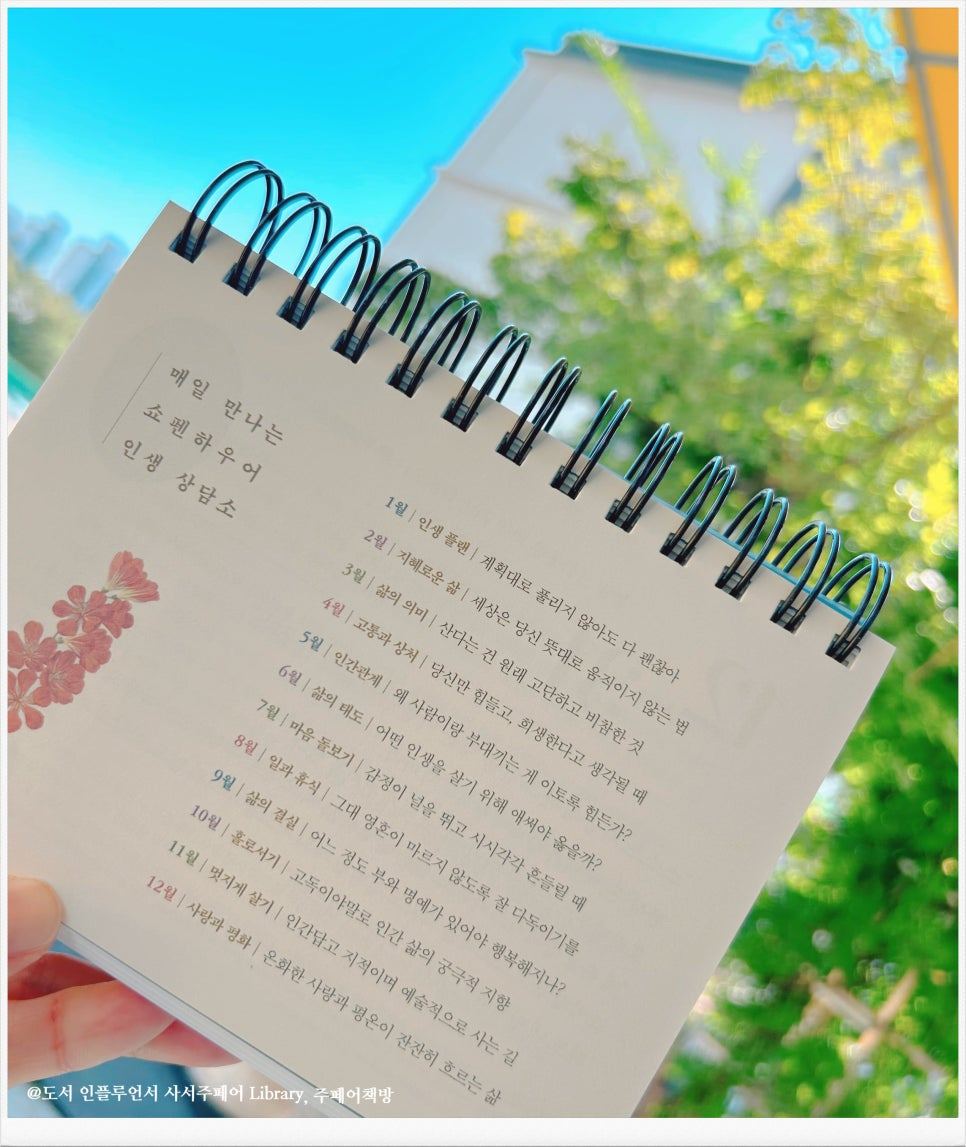 매일 만나는
쇼펜하우어
인생 상담소
1월 | 인생 플랜 | 계획대로 풀리지 않아도 다 괜찮아
2월 | 지혜로운 삶 | 세상은 당신 뜻대로 움직이지 않는 법
3월 | 삶의 의미 | 산다는 건 원래 고단하고 비참한 것
4월 | 고통과 상처 | 당신만 힘들고, 희생한다고 생각될 때
5월 | 인간관계 | 왜 사람이랑 부대끼는 게 이토록 힘든가?
6월 | 삶의 태도 | 어떤 인생을 살기 위해 애써야 옳을까?
7월 | 마음 돌보기 | 감정이 널을 뛰고 시시각각 흔들릴 때
8월 | 일과 휴식 | 그대 영혼이 마르지 않도록 잘 다독이기를
9월 | 삶의 결실 | 어느 정도 부와 명예가 있어야 행복해지나?
10월 | 홀로서기 | 고독이야말로 인간 삶의 궁극적 지향
11월 | 멋지게 살기 | 인간답고 지적이며 예술적으로 사는 길
12월 | 사랑과 평화 | 온화한 사랑과 평온이 잔잔히 흐르는 삶
@도서 인플루언서 사서주페어 Library, 주페어책방